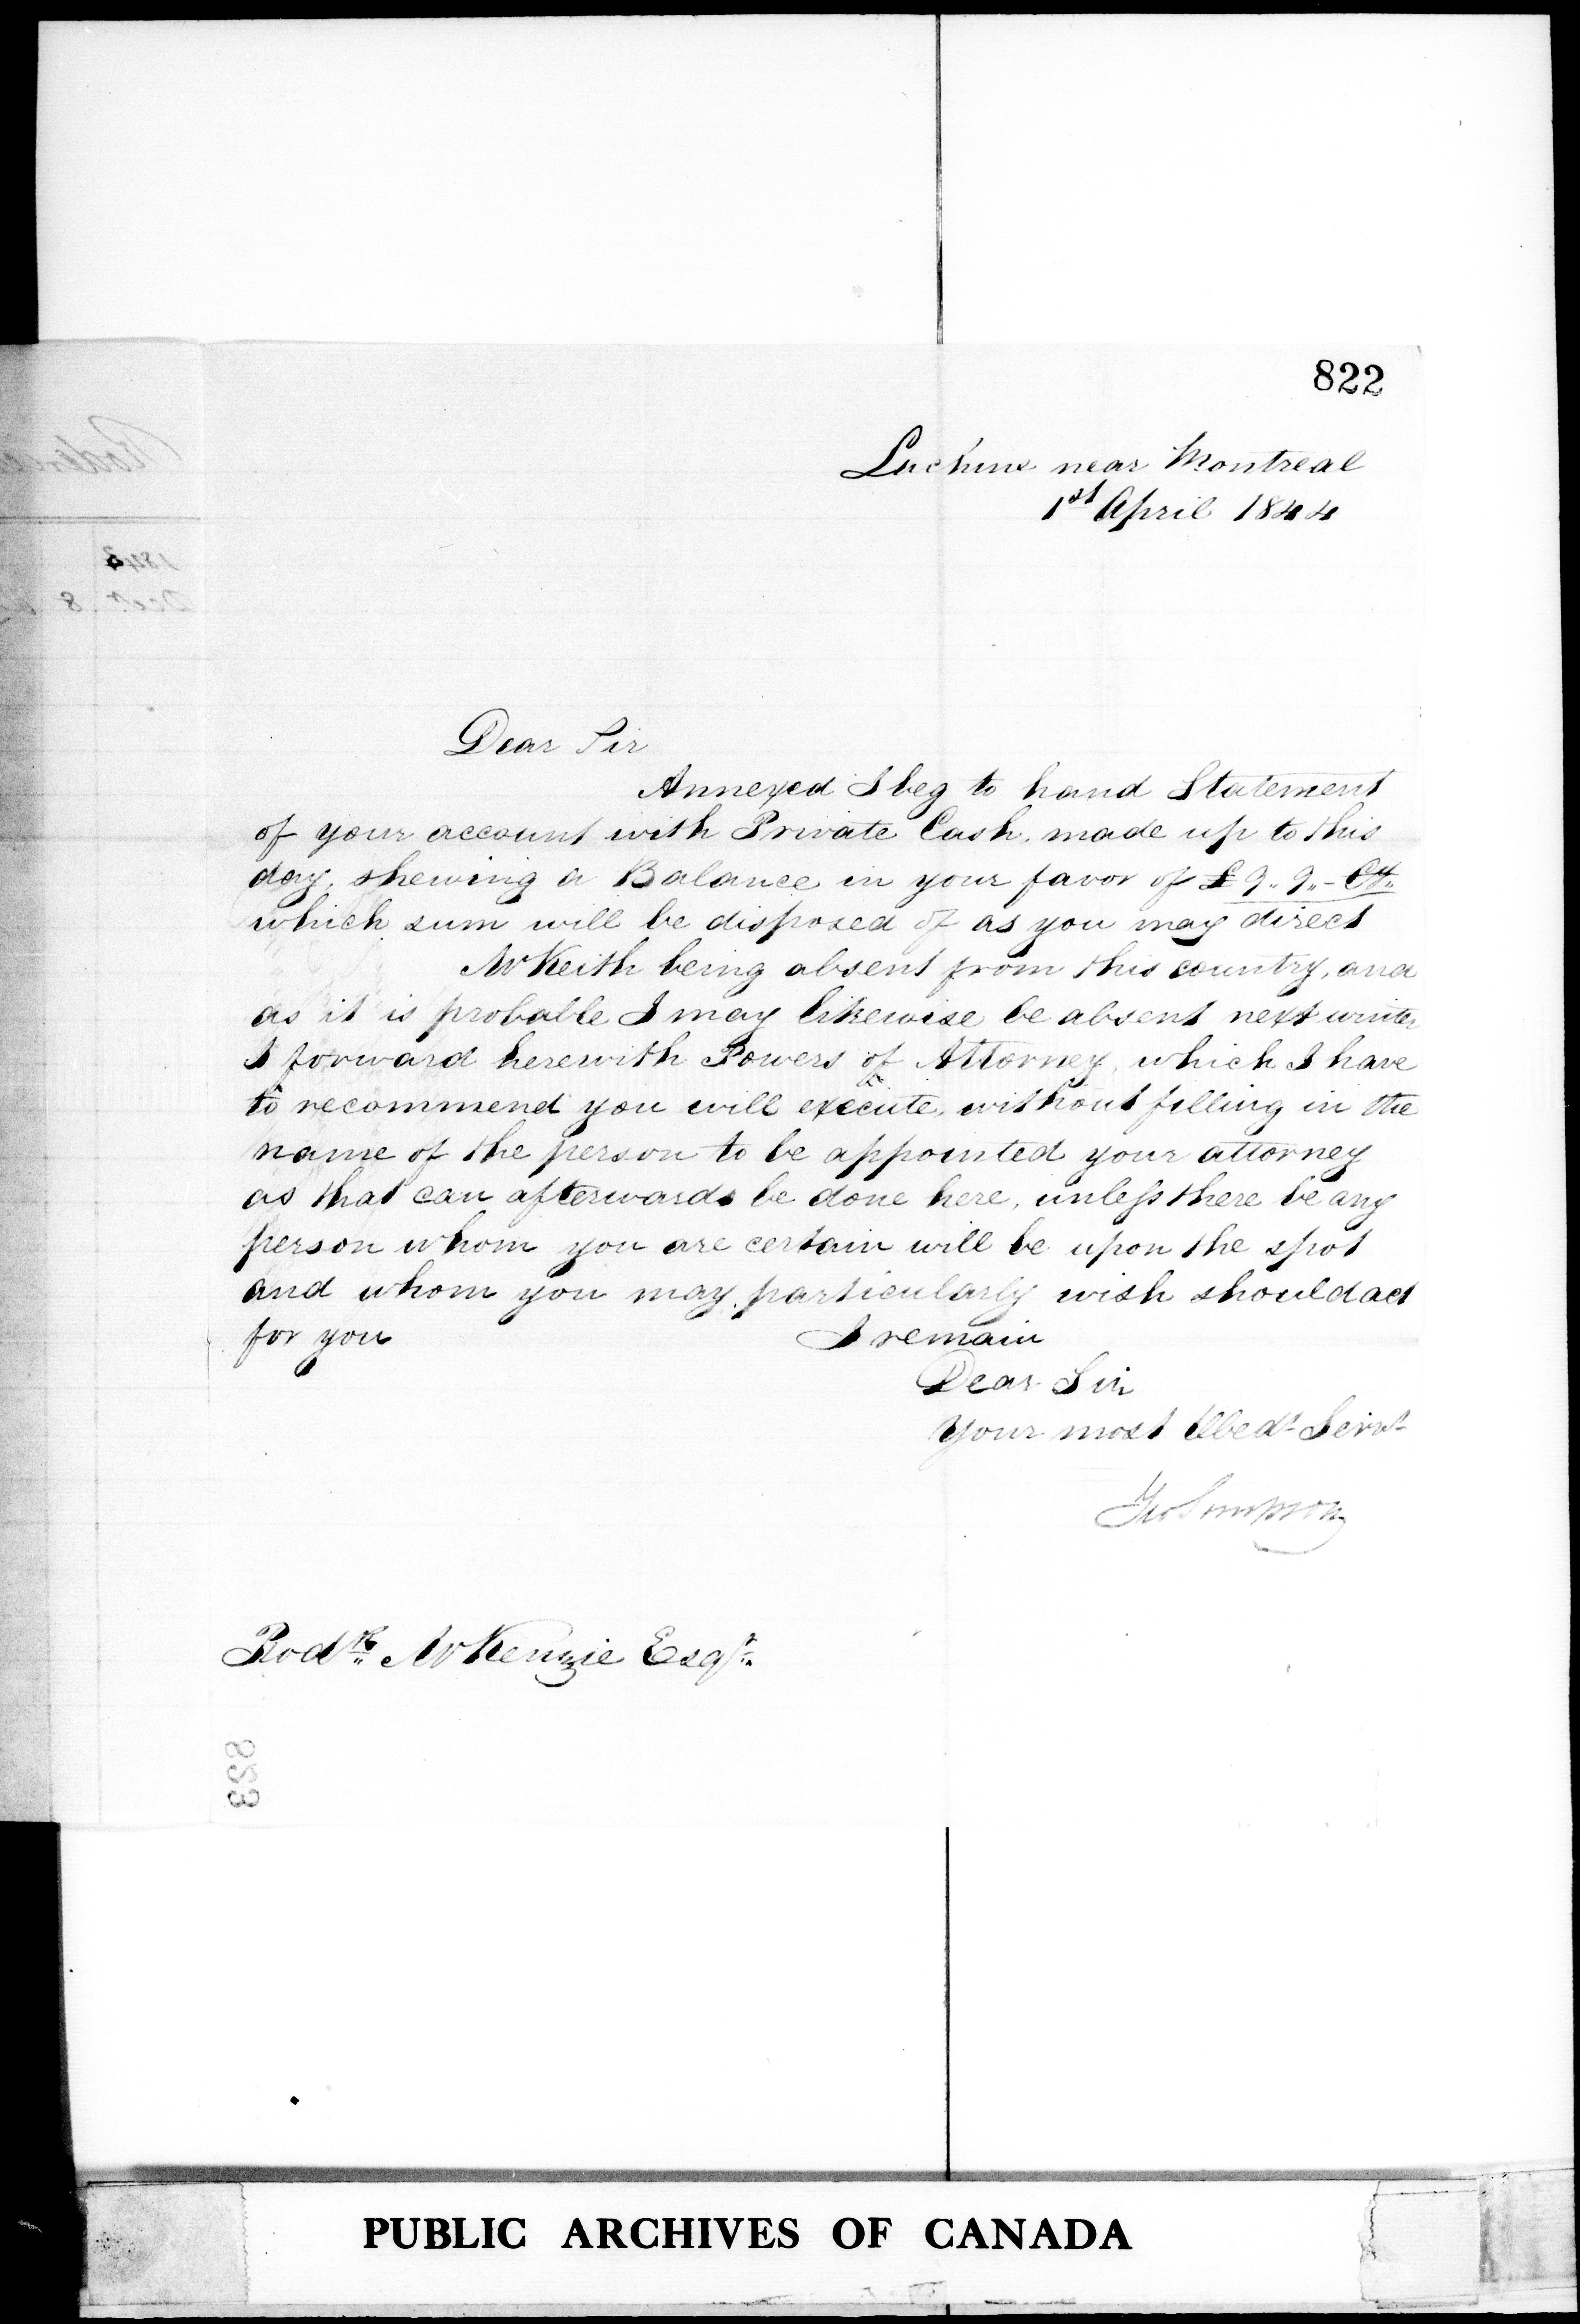 822
Lachine near Montreal
1st April 1844
Dear Sir
Annexed I beg to hand Statement
of your account with Private Cash, made up to this
day, shewing a Balance in your favor of £9„ 9„ - Cy„
which sum will be disposed of as you may direct
Mr Keith being absent from this country, and
as it is probable I may likewise be absent next winter
I forward herewith Powers of Attorney, which I have
to recommend you will execute, without filling in the
name of the person to be appointed your attorney
as that can afterwards be done here, unless there be any
person whom you are certain will be upon the spot
and whom you may particularly wish should act
for you
I remain
Dear Sir
Your most Obedt Servt
Geo Simpson
Rodk McKenzie Esqr
823
1843
Decr. 8
PUBLIC ARCHIVES OF CANADA